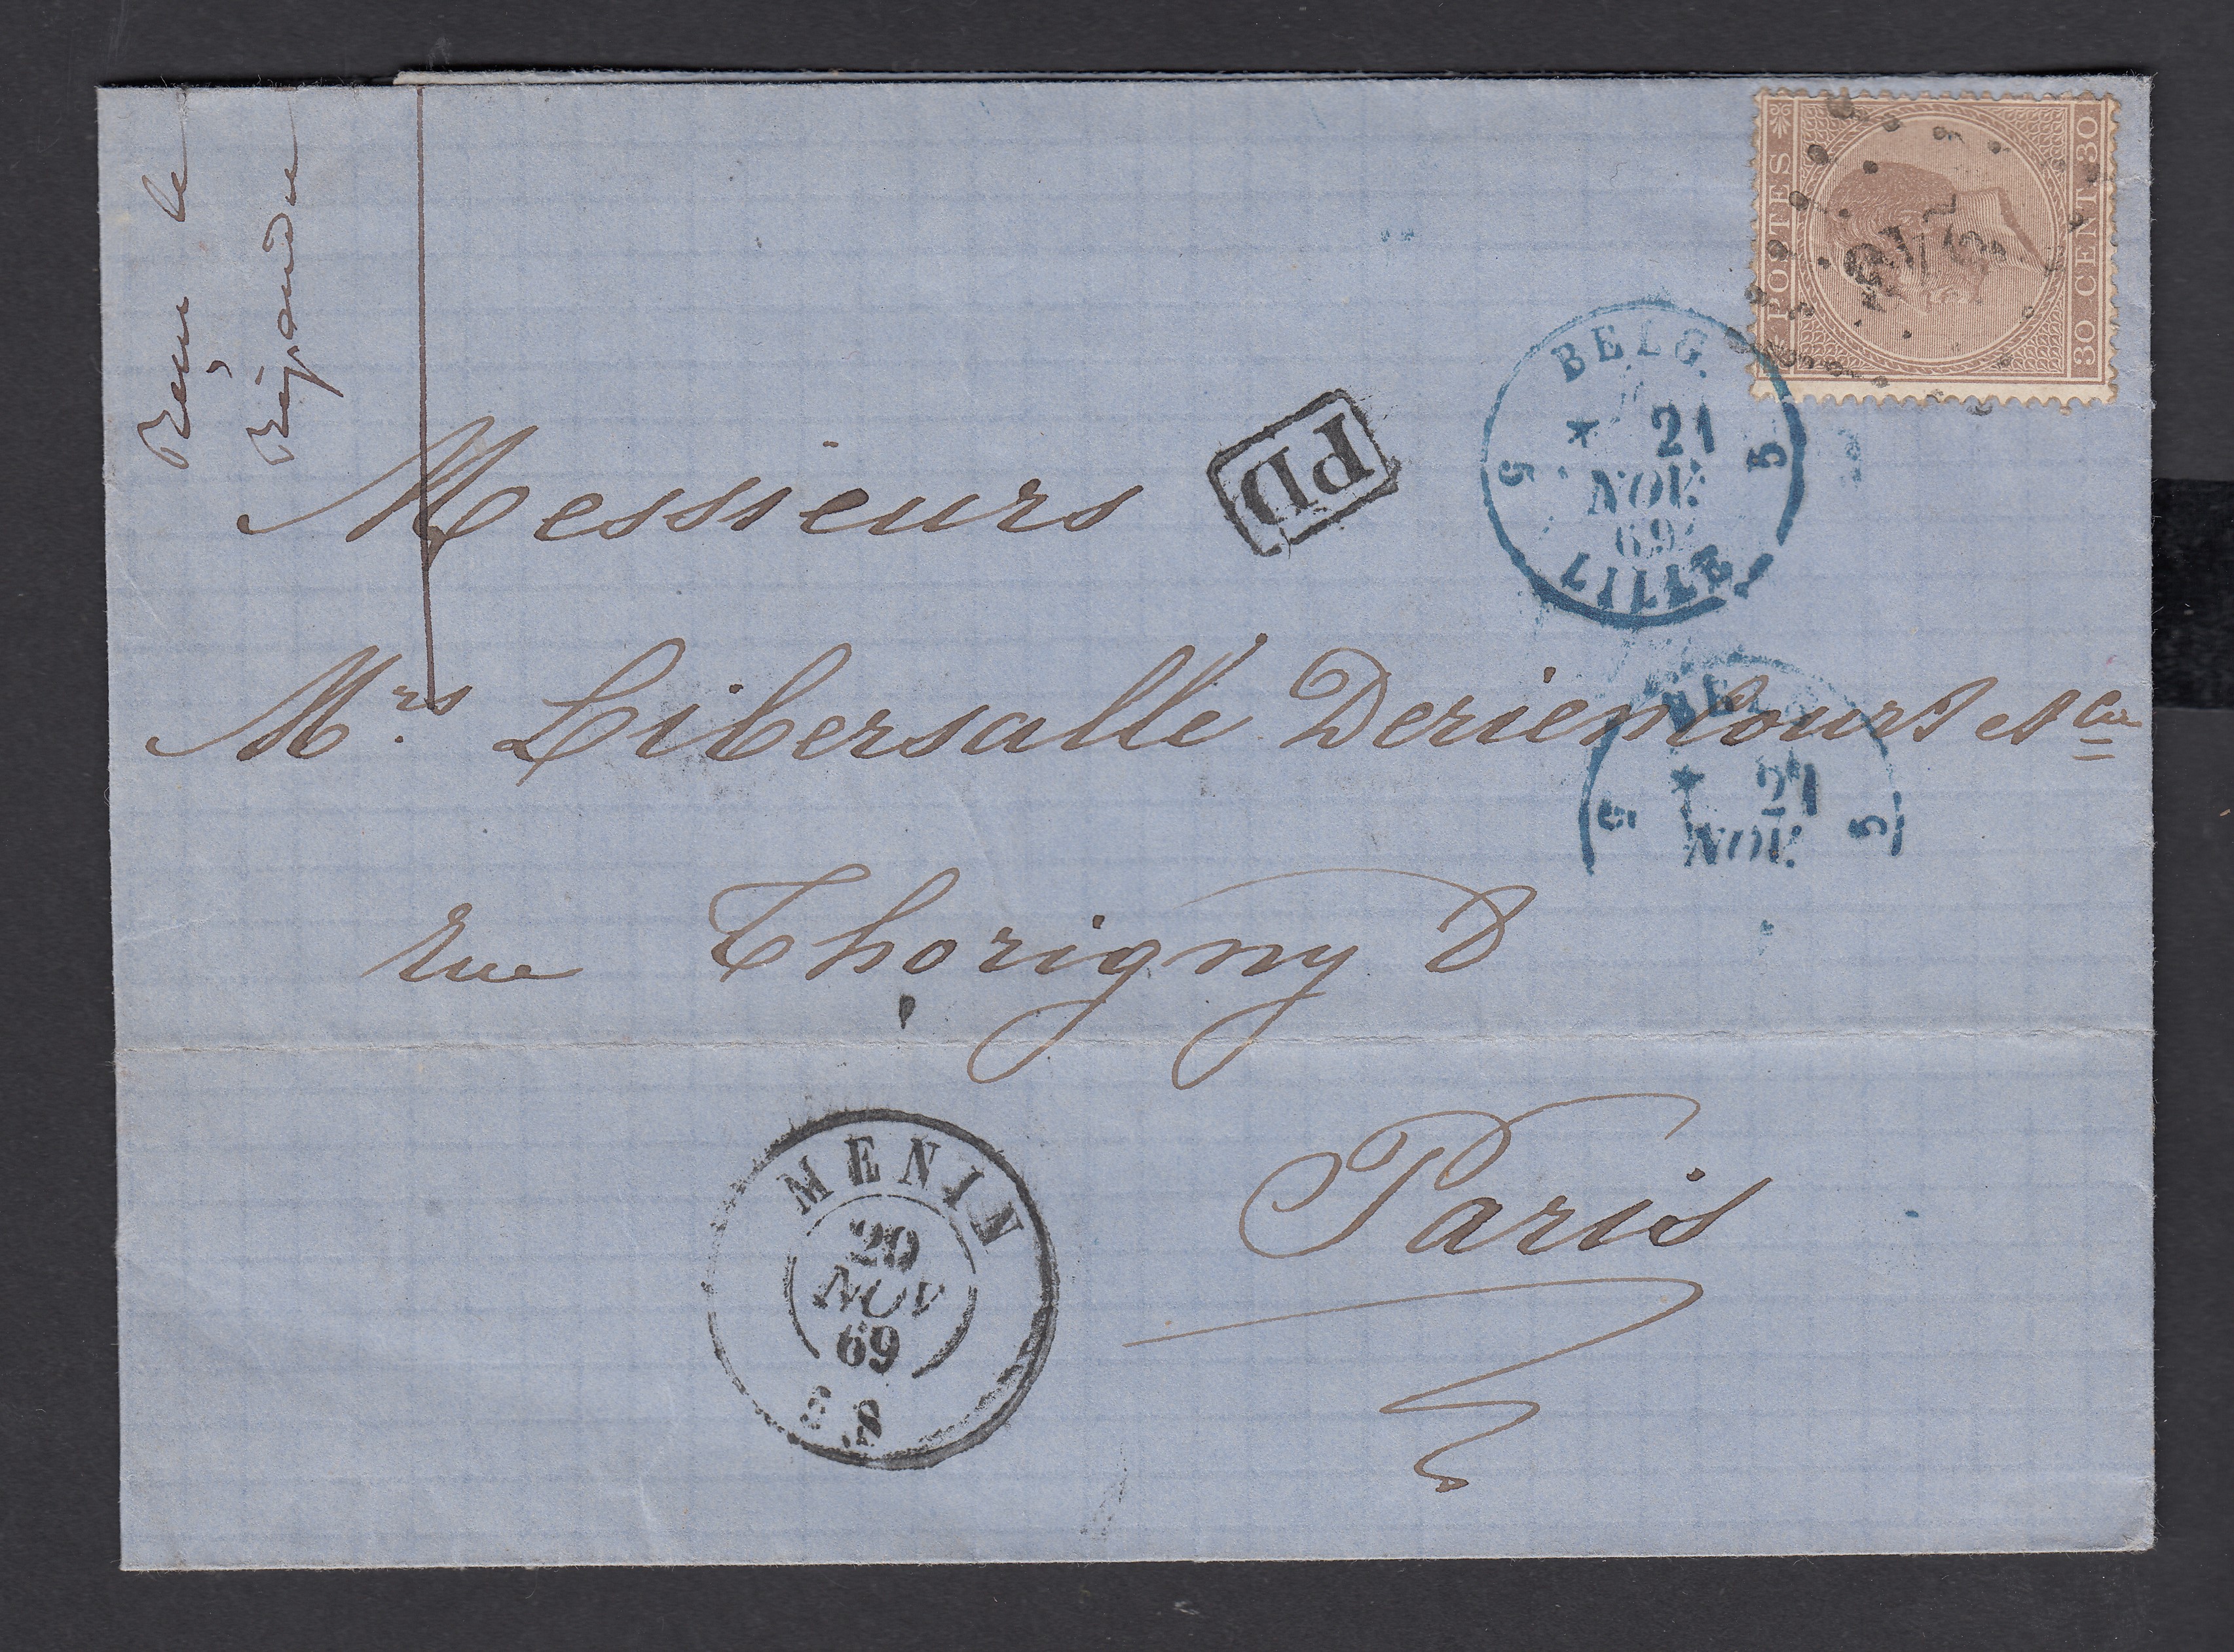 Reçu le
Répondu
POSTES
30 CENT. 30
Messieurs
PD
BELG.
* 21
5 NOV. 5
69
LILLE
Mrs Libersalle Deriencourt et Cie
BELG.
* 21
5 NOV. 5
rue Thorigny 8
Paris
MENIN
20
NOV
69